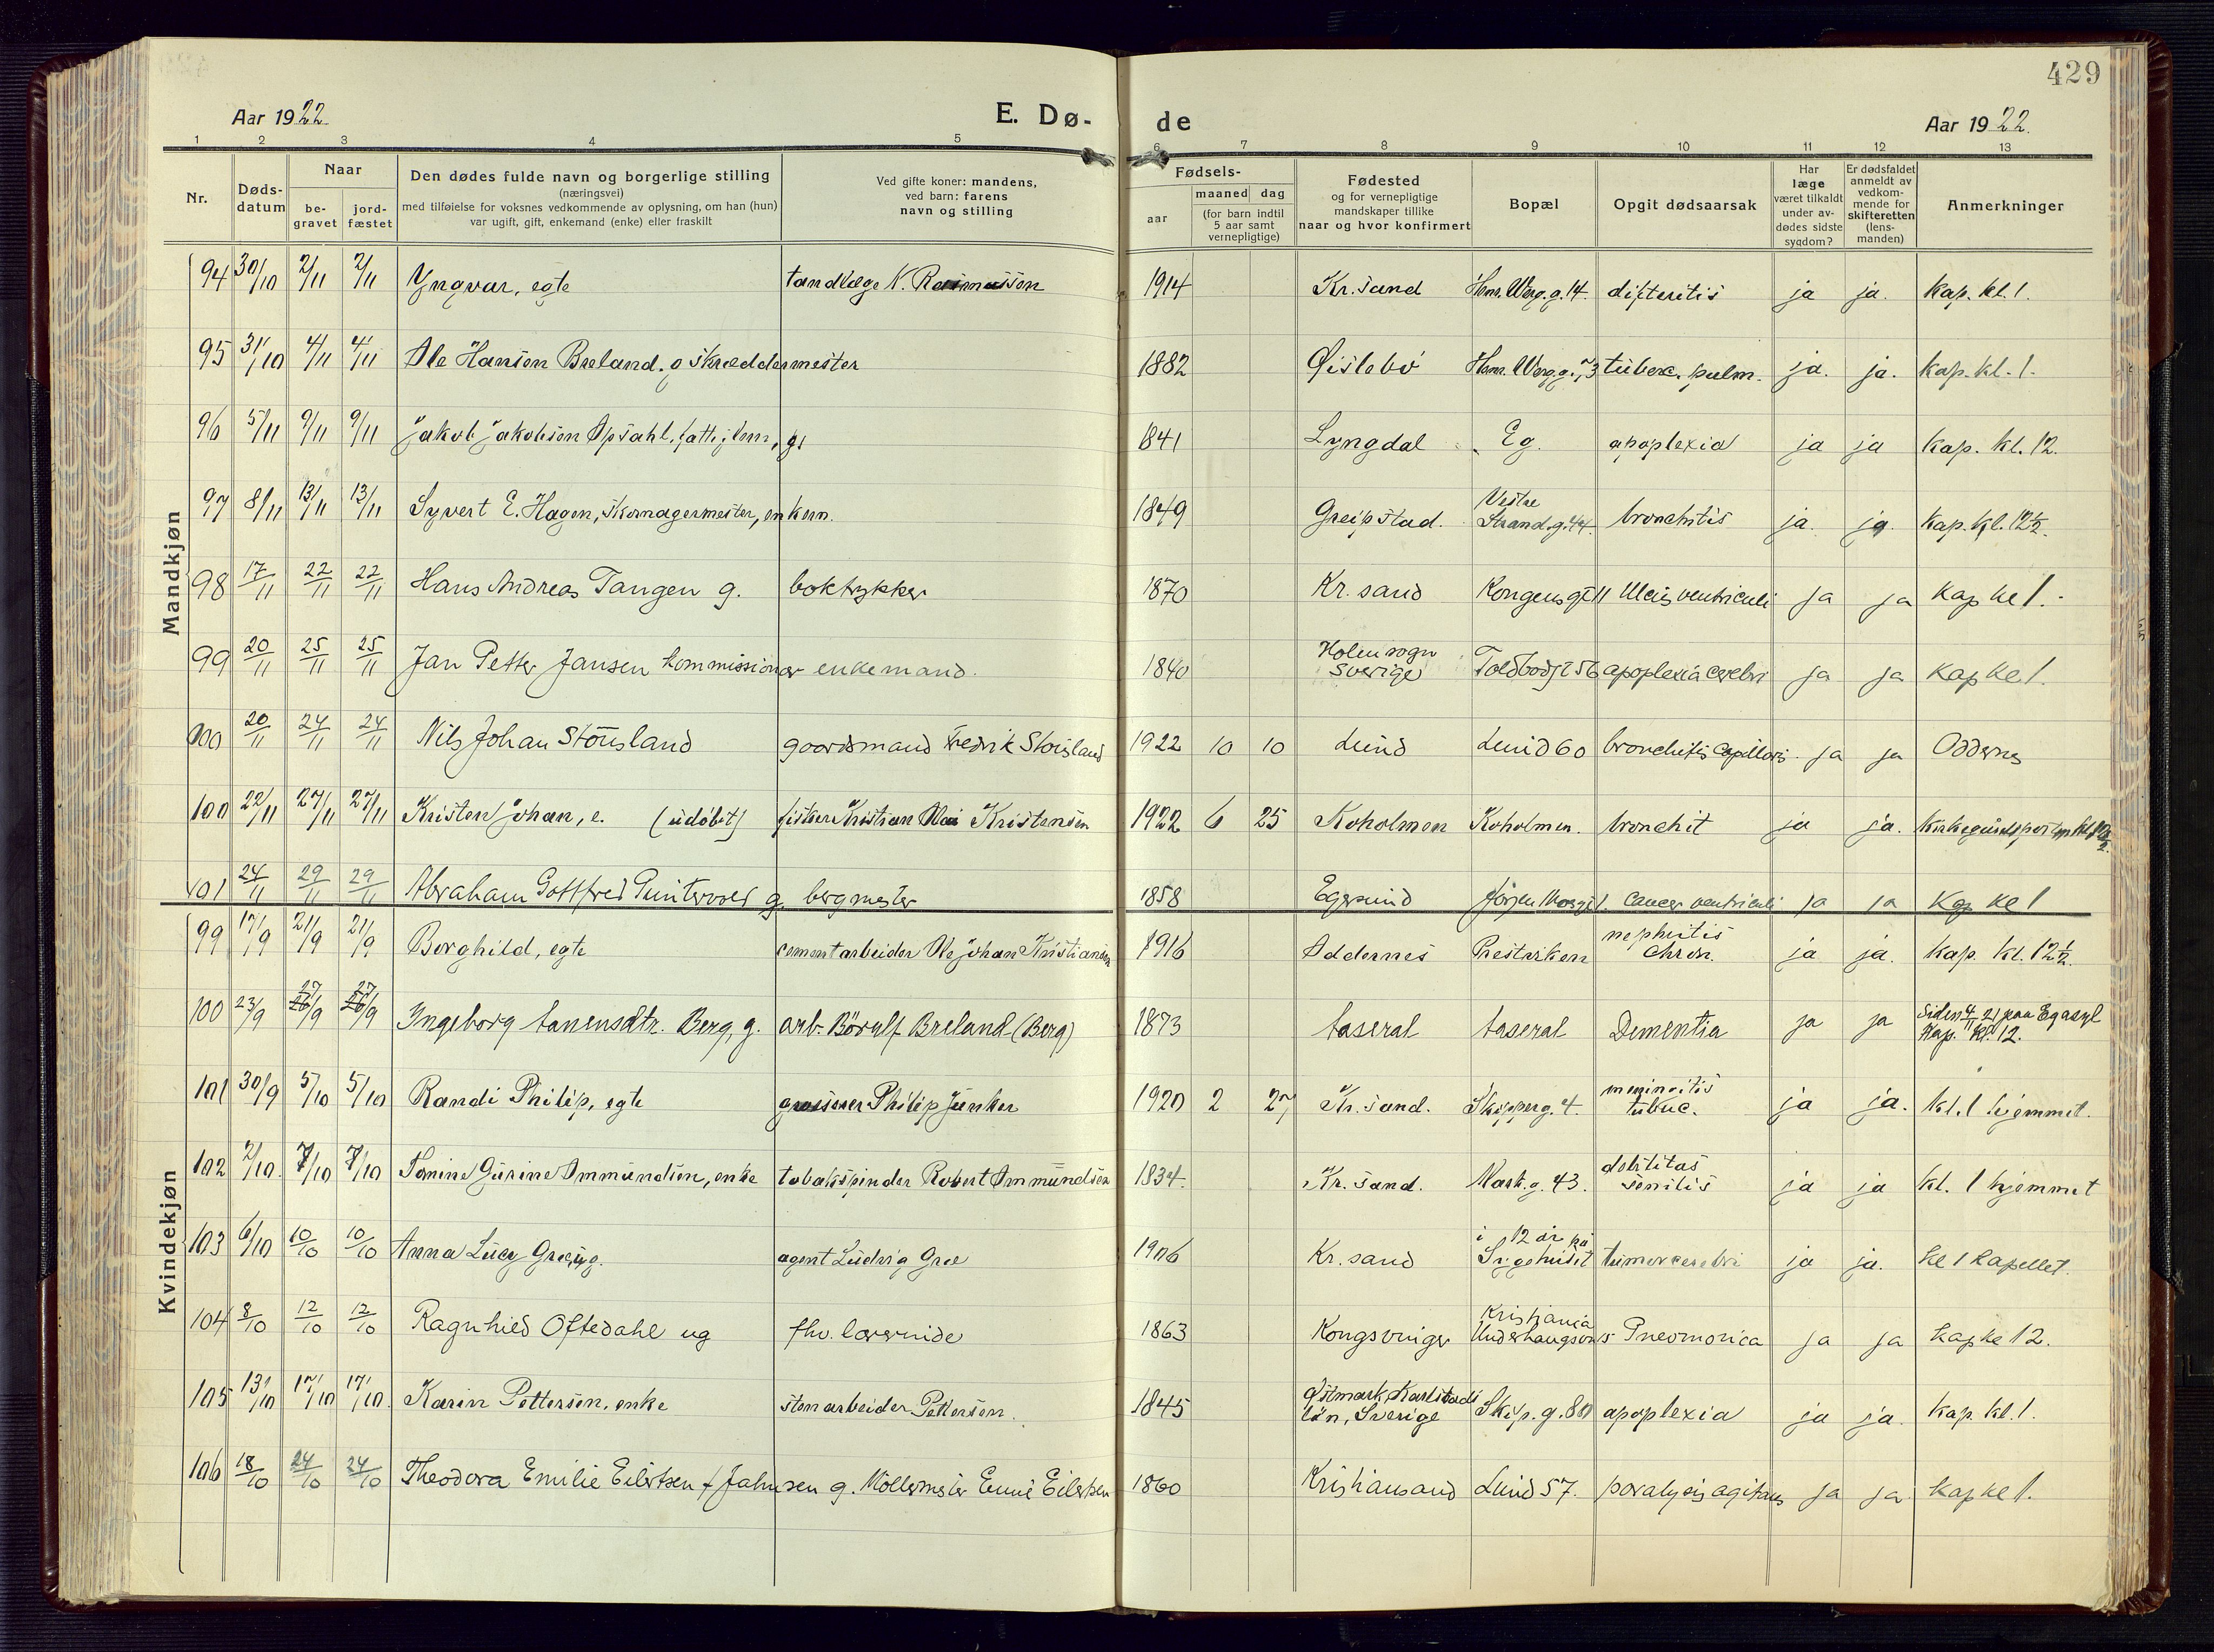 429
Aar 1922
E. Dø-
de
Aar 1922.
1 2 3 4 5 6 7 8 9 10 11 12 13
Nr.
Døds-
datum
Naar
be-
gravet
jord-
fæstet
Den dødes fulde navn og borgerlige stilling
(næringsvei)
med tilføielse for voksnes vedkommende av oplysning, om han (hun)
var ugift, gift, enkemand (enke) eller fraskilt
Ved gifte koner: mandens,
ved barn: farens
navn og stilling
Fødsels-
aar
maaned dag
(for barn indtil
5 aar samt
vernepligtige)
Fødested
og for vernepligtige
mandskaper tillike
naar og hvor konfirmert
Bopæl
Opgit dødsaarsak
Har
læge
været tilkaldt
under av-
dødes sidste
sygdom?
Er dødsfaldet
anmeldt av
vedkom-
mende for
skifteretten
(lens-
manden)
Anmerkninger
Mandkjøn
94 30/10 2/11 2/11 Yngvar, egte tandlæge K. Rasmussen 1914 Kr.sand Henr. Werg. g. 14. difteritis ja ja. Kap. kl. 1.
95 31/10 4/11 4/11 Ole Hansen Breland. g skreddermester 1882 Øislebö Henr. Werg. g. 73 tuberc. pulm. ja. ja. Kap. kl. 1.
96 5/11 9/11 9/11 Jakob Jakobsen Opsahl, fattiglem, g. 1841 Lyngdal Eg. apoplexia ja ja Kap. kl. 12.
97 8/11 13/11 13/11 Syvert E. Hagen, skomagermester, enkem. 1849 Greipstad. Vestre Strand.g. 44. bronchitis ja. ja. Kap. kl. 12½.
98 17/11 22/11 22/11 Hans Andreas Tangen g. boktrykker 1870 Kr. sand Kongensgt 11 Ulcus ventriculi ja ja Kap kl 1.
99 20/11 25/11 25/11 Jan Petter Jansen kommissionær enkemand. 1840 Holm sogn Sverige Toldbodgt 56 apoplexia cerebri ja ja Kap kl 1.
100 20/11 24/11 24/11 Nils Johan Stousland gaardsmand Fredrik Stousland 1922 10 10 Lund Lund 60 bronchitis capillaris. ja ja Oddernes
100 22/11 27/11 27/11 Kristen Johan, e. (udöbt) fisker Kristian Kristensen 1922 6 25 Koholmen Koholmen. bronchit ja ja.
101 24/11 29/11 29/11 Abraham Gottfred Puntervold g. bergmester 1858 Egersund cancer ventriculi ja ja Kap kl 1
Kvindekjøn
99 17/9 21/9 21/9 Borghild, egte cementarbeider Ole Johan Kristiansen 1916 Oddernes nephritis chron. ja ja. Kap. kl. 12½.
100 23/9 27/9 27/9 Ingeborg Berg, g. arb. Börulf Breland (Berg) 1873 Aaseral Aaseral Dementia ja ja Siden 4/11 21 paa Eg asyl Kap. kl. 12.
101 30/9 5/10 5/10 Randi Philip, egte grosserer Philip Junker 1920 2 27 Kr.sand. Skipperg. 4. meningitis tuberc. ja ja. kl. 1 hjemmet.
102 2/10. 7/10 7/10 Tomine Gurine Ommundsen, enke tobakspinder Robert Ommundsen 1834. Kr. sand. Mark. g. 43. debilitas senilis ja ja kl. 1 hjemmet
103 6/10 10/10 10/10 Anna Lucy Gree, ug. agent Ludvig Gree 1906 Kr. sand i 12 år på Sygehuset tumor cerebri ja ja. kl 1 kapellet.
104 8/10 12/10 12/10 Ragnhild Oftedahl ug fhv. lærerinde 1863 Kongsvinger Kristiania Pneomonica ja ja Kap kl 12.
105 13/10 17/10 17/10 Karin Pettersen, enke stenarbeider Pettersen. 1845 Östmark, Karlstads län, Sverige Skip. g. 88 apoplexia ja ja. Kap. kl. 1.
106 18/10 24/10 24/10 Theodora Emilie Eilertsen f Jahnsen g. Möllermester Emil Eilertsen 1860 Kristiansand Lund 57. paralysis agitans ja ja Kap kl 1.